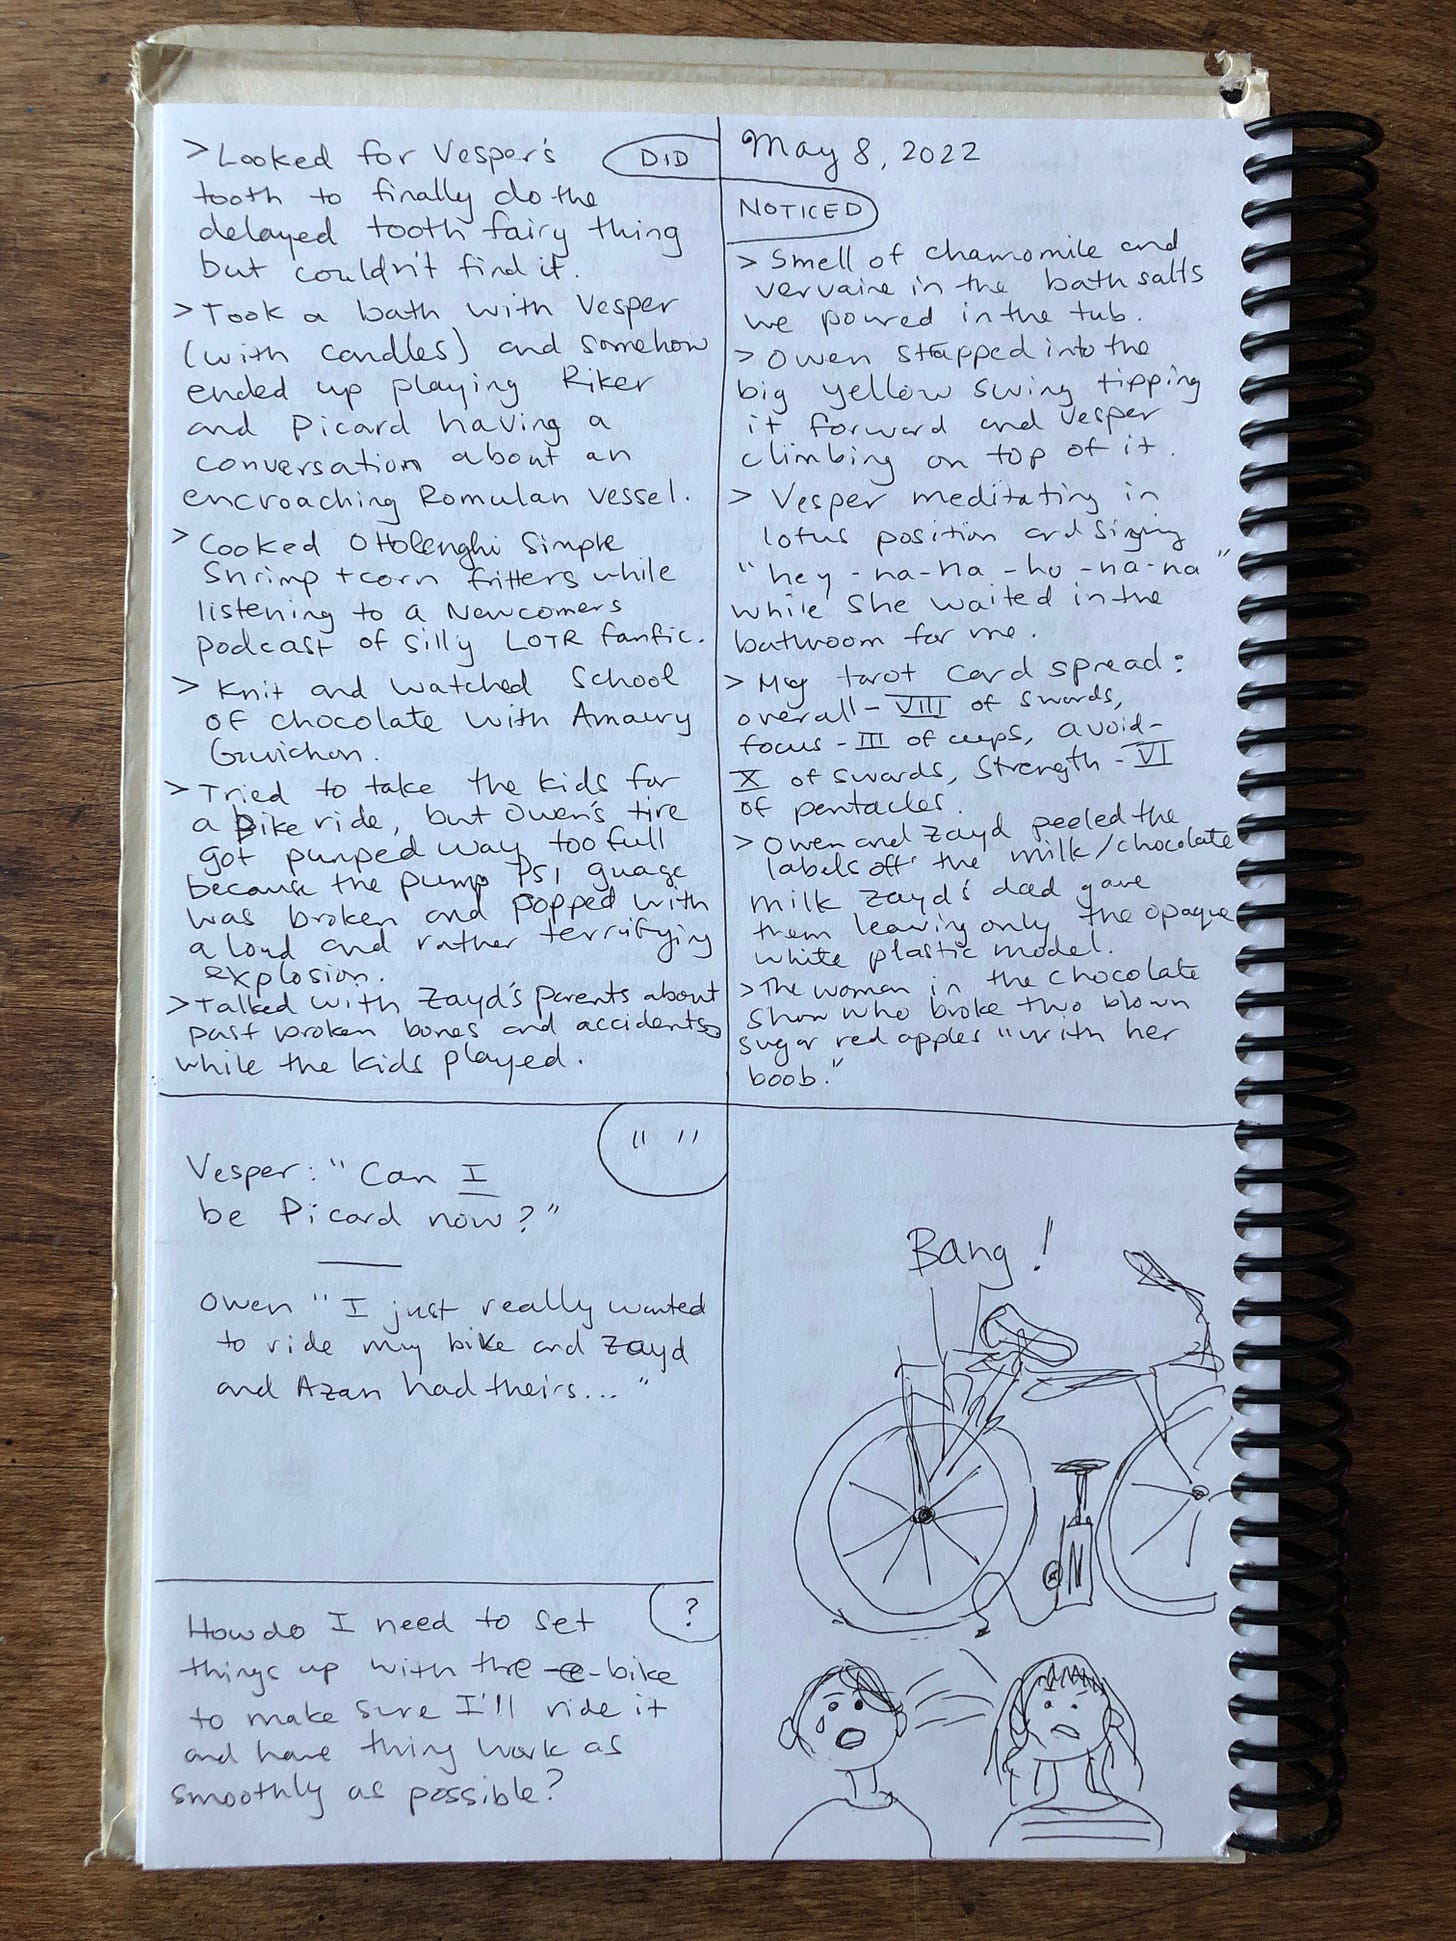 DID
> Looked for Vesper's
tooth to finally do the
delayed tooth fairy thing
but couldn't find it.
> Took a bath with Vesper
(with candles) and somehow
ended up playing Riker
and Picard having a
conversation about an
encroaching Romulan vessel.
> Cooked Ottolenghi Simple
Shrimp + corn fritters while
listening to a Newcomers
podcast of silly LOTR fanfic.
> Knit and watched School
of chocolate with Amaury
Guichon.
> Tried to take the kids for
a bike ride, but Owen's tire
got pumped way too full
because the pump PSI guage
was broken and popped with
a loud and rather terrifying
explosion.
> Talked with Zayd's parents about
past broken bones and accidents
while the kids played.
May 8, 2022
NOTICED
> Smell of chamomile and
vervaine in the bath salts
we poured in the tub.
> Owen strapped into the
big yellow swing tipping
it forward and Vesper
climbing on top of it.
> Vesper meditating in
lotus position and singing
"hey-na-na-hu-na-na"
while she waited in the
bathroom for me.
> My tarot card spread:
overall - VIII of swords,
focus - III of cups, avoid -
X of swords, strength - VI
of pentacles.
> Owen and Zayd peeled the
labels off the milk/chocolate
milk Zayd's dad gave
them leaving only the opaque
white plastic model.
> The woman in the chocolate
show who broke two blown
sugar red apples "with her
boob."
" "
Vesper: "Can I
be Picard now?"
Owen "I just really wanted
to ride my bike and Zayd
and Azan had theirs..."
?
How do I need to set
things up with the e-bike
to make sure I'll ride it
and have thing work as
smoothly as possible?
Bang!